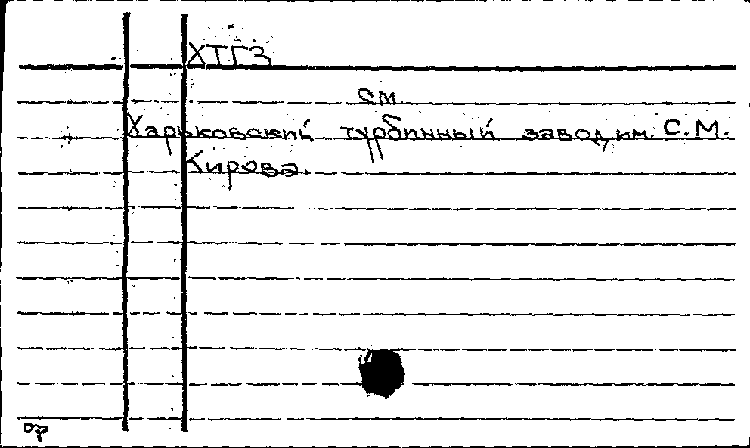 ХТГЗ
см
Харьковский турбинный завод им. С.М.
Кирова.